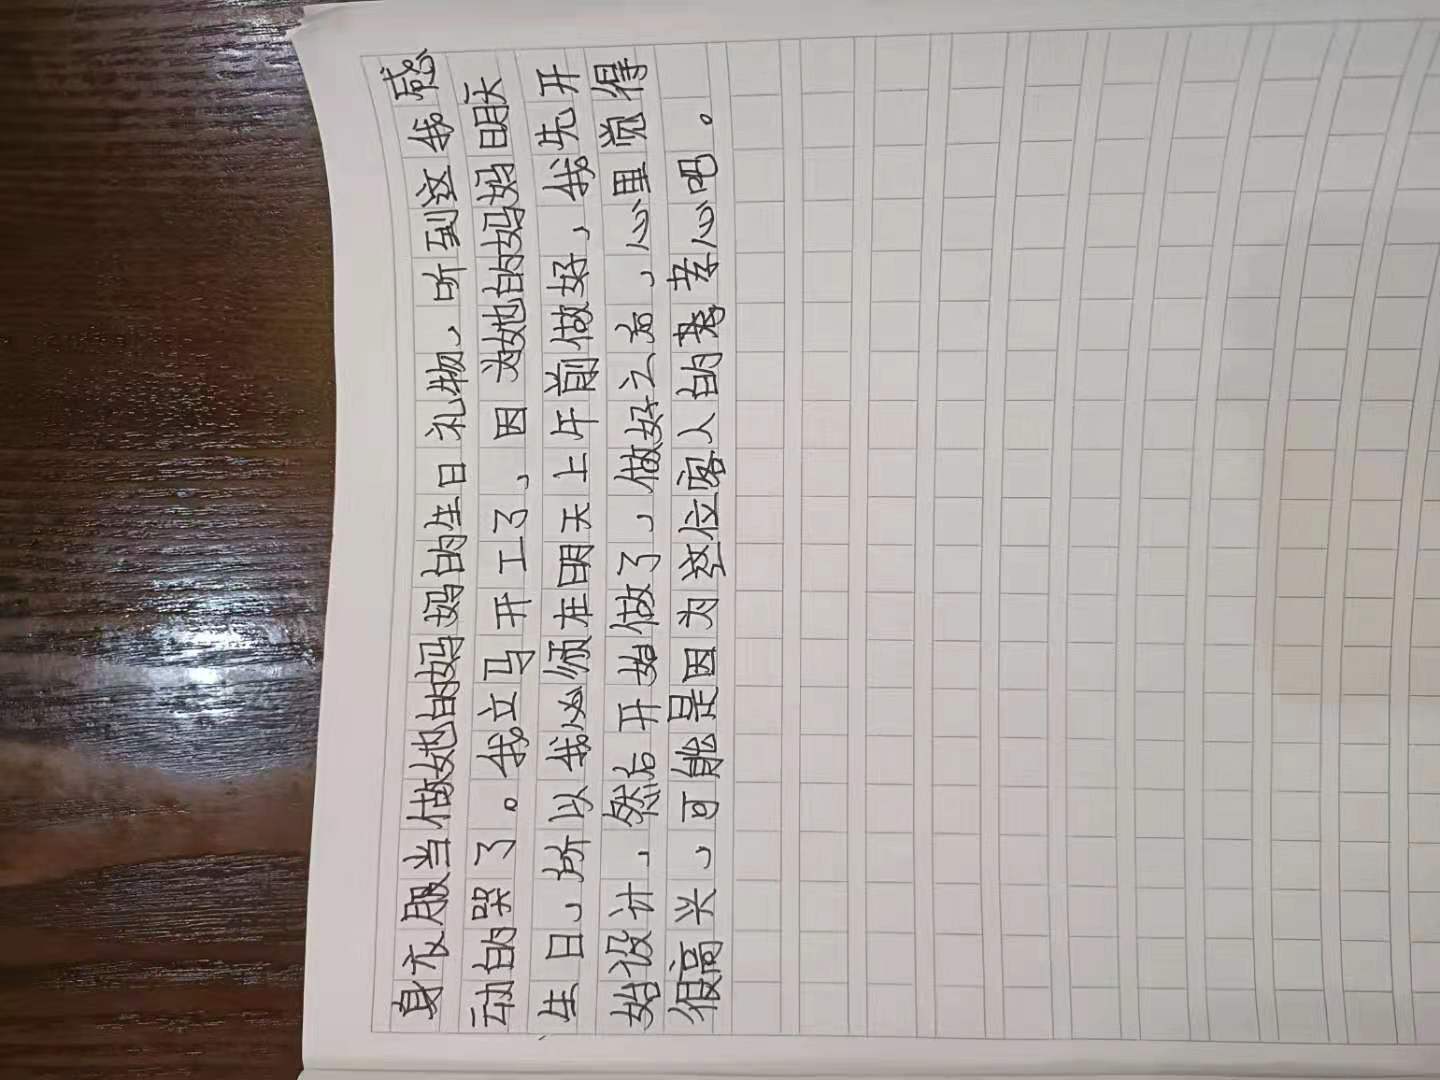 身衣服当做她的妈妈的生日礼物、听到这我感
动的哭了。我立马开工了、因为她的妈妈明天
生日、所以我必须在明天上午前做好、我先开
始设计、然后开始做了、做好之后、心里觉得
很高兴、可能是因为这位客人的孝心吧。